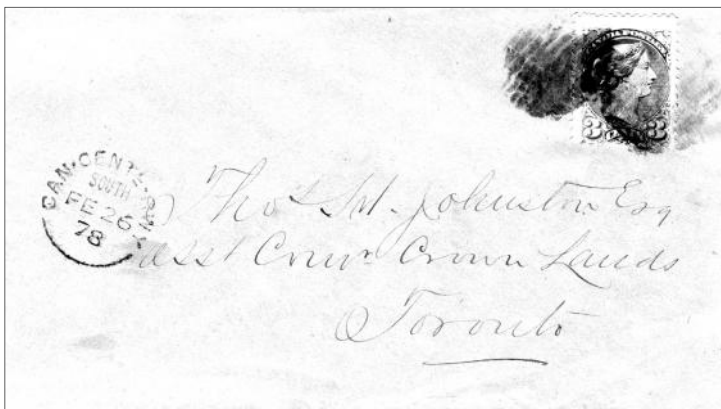 3 3
CAN. CENT. RY
SOUTH
FE 26
78
Thos. H. Johnston Esq
Asst Comr Crown Lands
Toronto